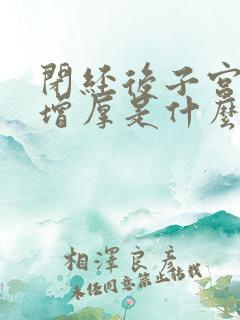 閉經後子宮
增厚是什麼
相澤良彥
未經同意禁止轉載